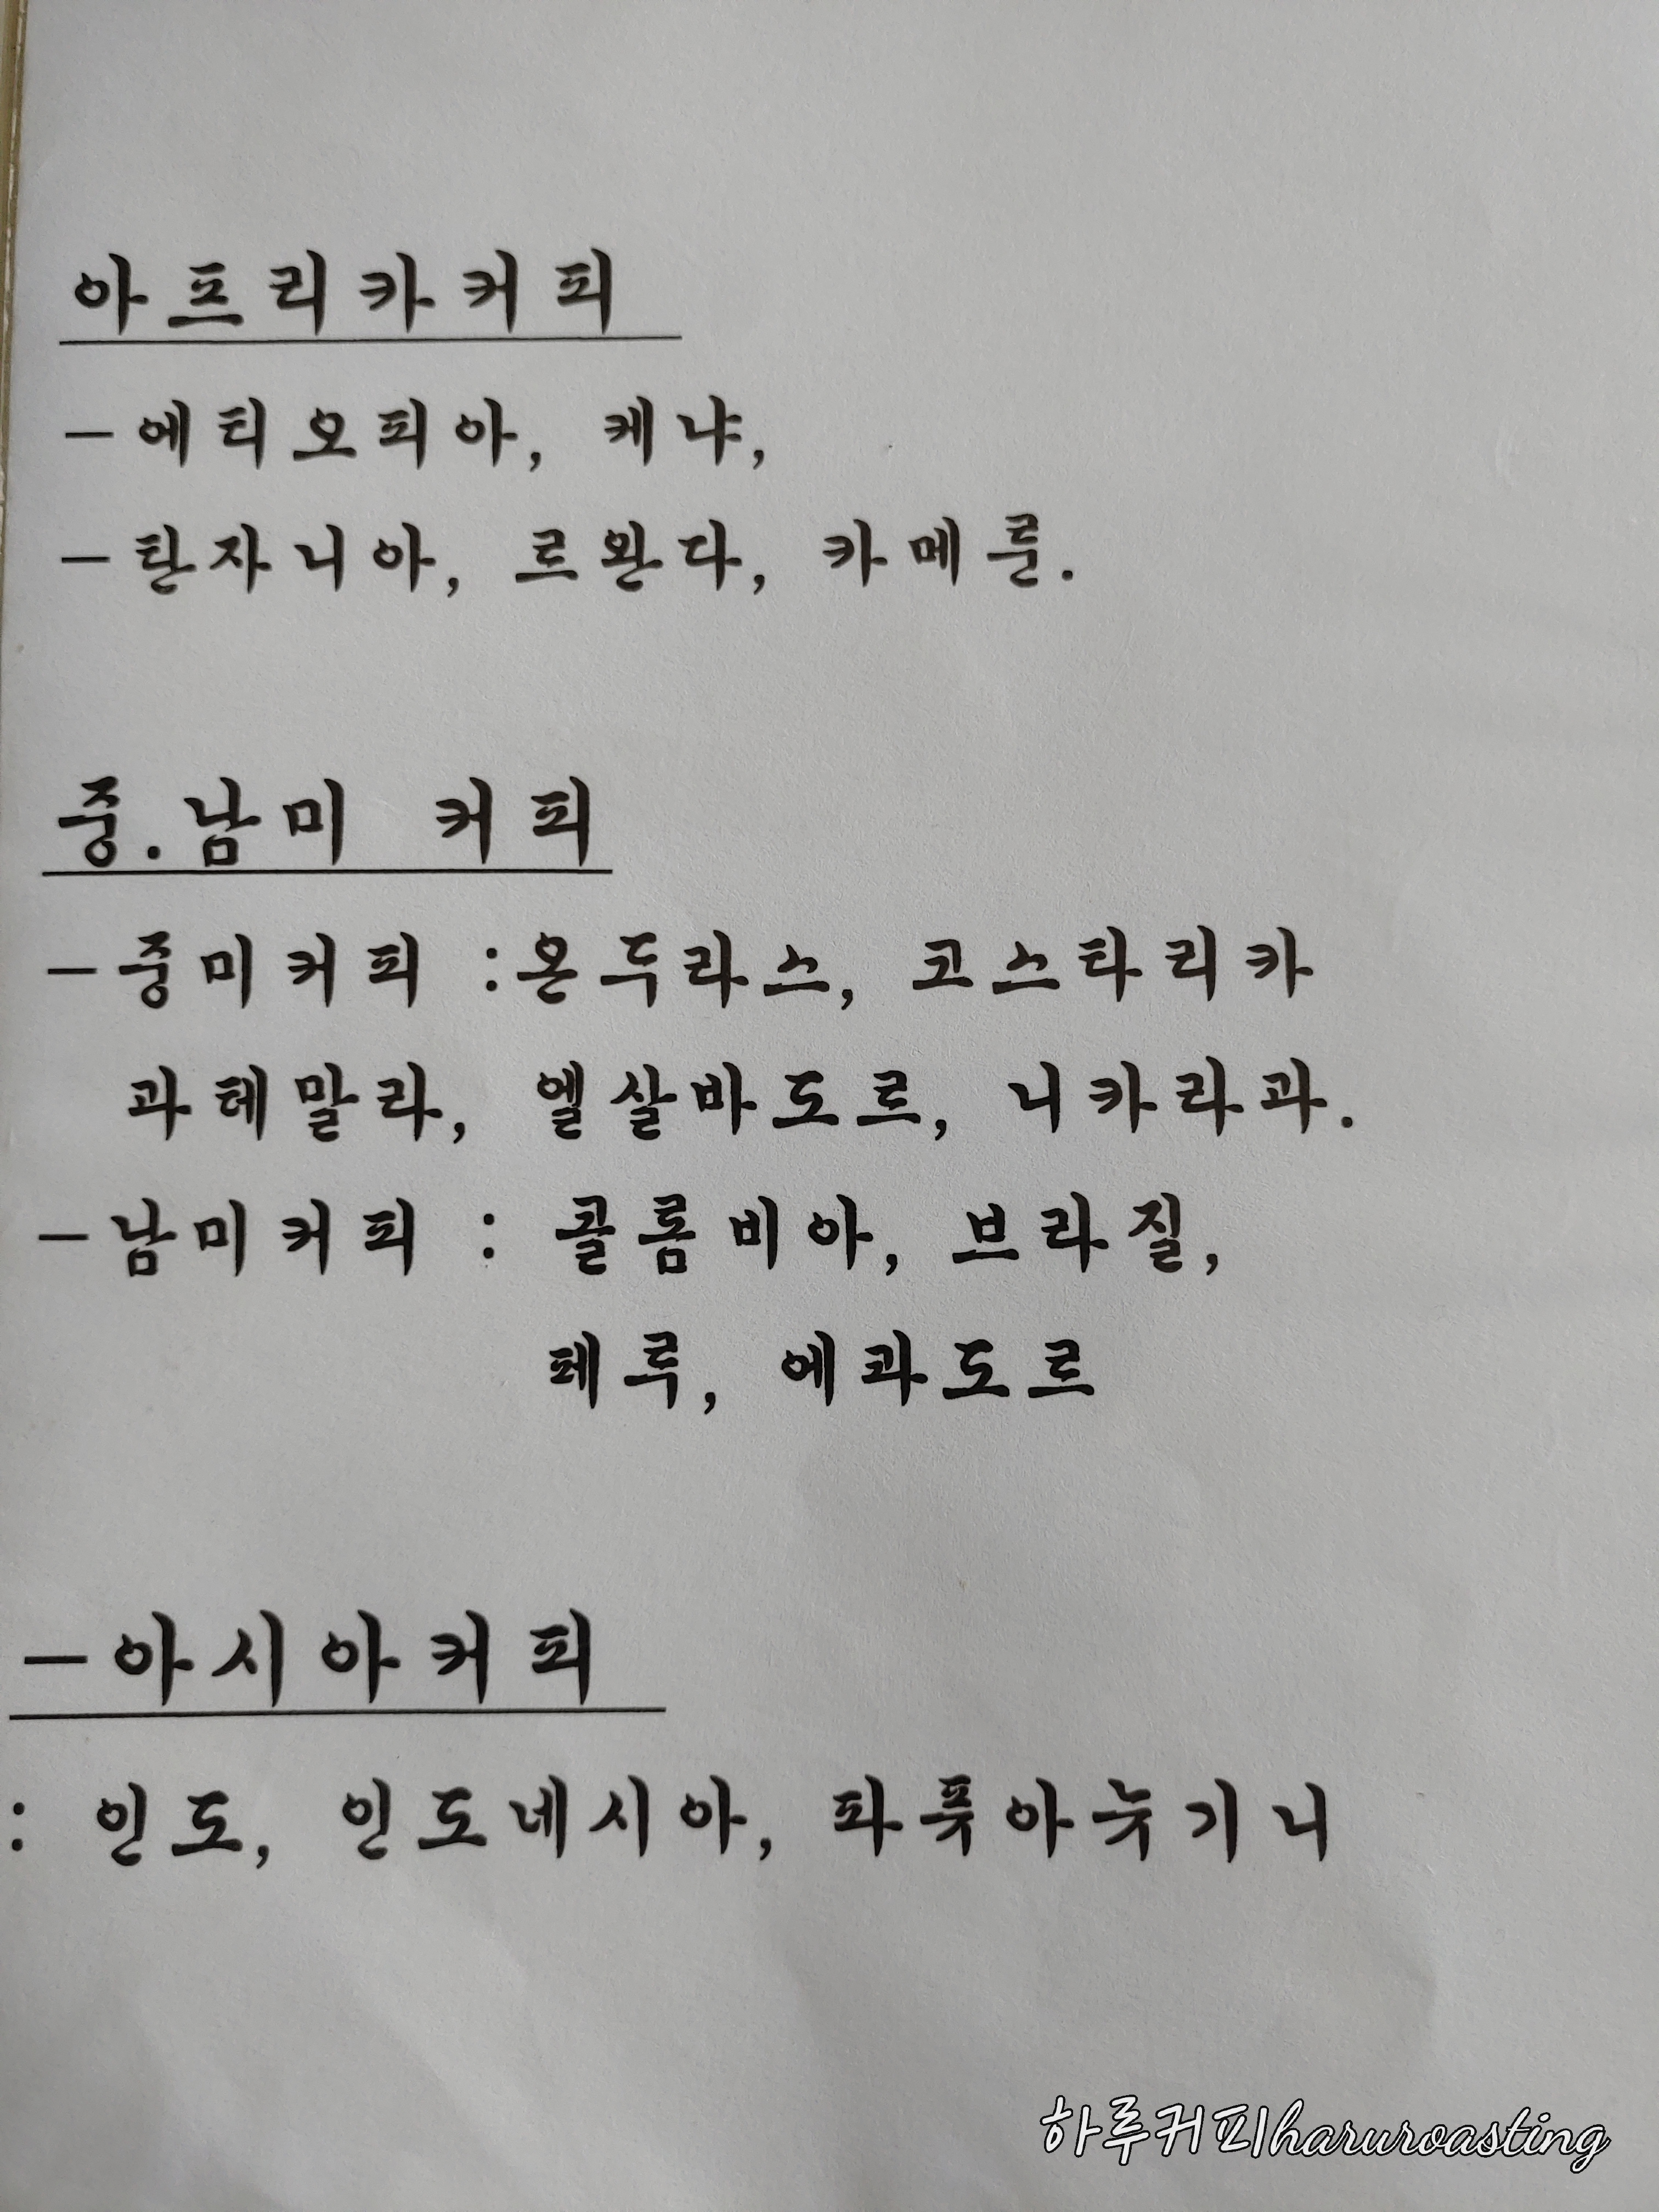 아프리카커피
-에티오피아, 케냐,
-탄자니아, 르완다, 카메룬.
중.남미 커피
-중미커피 :온두라스, 코스타리카
과테말라, 엘살바도르, 니카라과.
-남미커피 : 콜롬비아, 브라질,
페루, 에콰도르
-아시아커피
: 인도, 인도네시아, 파푸아뉴기니
하루커피haruroasting